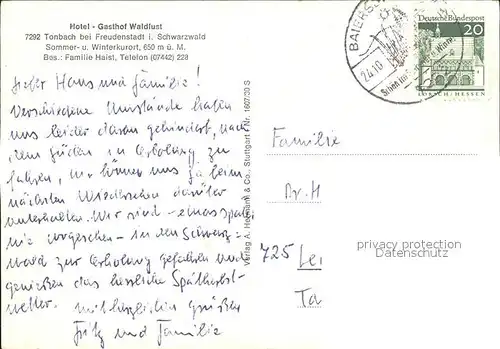 Hotel - Gasthof Waldlust
7292 Tonbach bei Freudenstadt i. Schwarzwald
Sommer- u. Winterkurort, 650 m ü. M.
Bes.: Familie Haist, Telefon (07442) 228
Lieber Hans und Familie!
Verschiedene Umstände haben
uns leider daran gehindert, nach
dem Süden in Erholung zu
fahren, wir können uns ja beim
nächsten Wiedersehen darüber
unterhalten. Wir sind - etwas spani
nie vorgesehen - in den Schwarz-
wald zur Erholung gefahren und
genießen das herrliche Spätherbst-
wetter. Mit herzlichen Grüßen
Fritz und Familie
Verlag A. Hermann & Co., Stuttgart · Nr. 1607/30 S
BAIERS
24.10
Deutsche Bundespost
20
LORSCH/HESSEN
Familie
Dr. H
725 Lei
Ta
privacy protection
Datenschutz